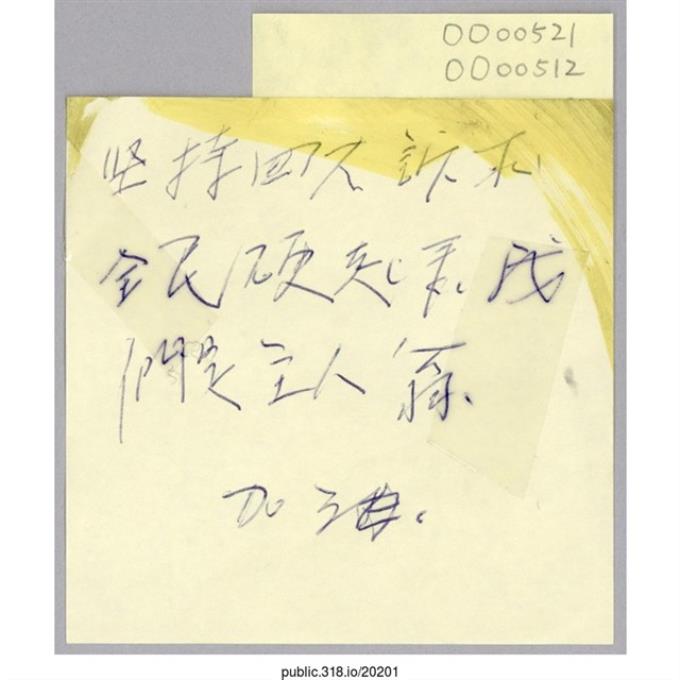 0000521
0000512
坚持四大訴求
全民硬起來。我
們是主人翁。
加油。
public.318.io/20201